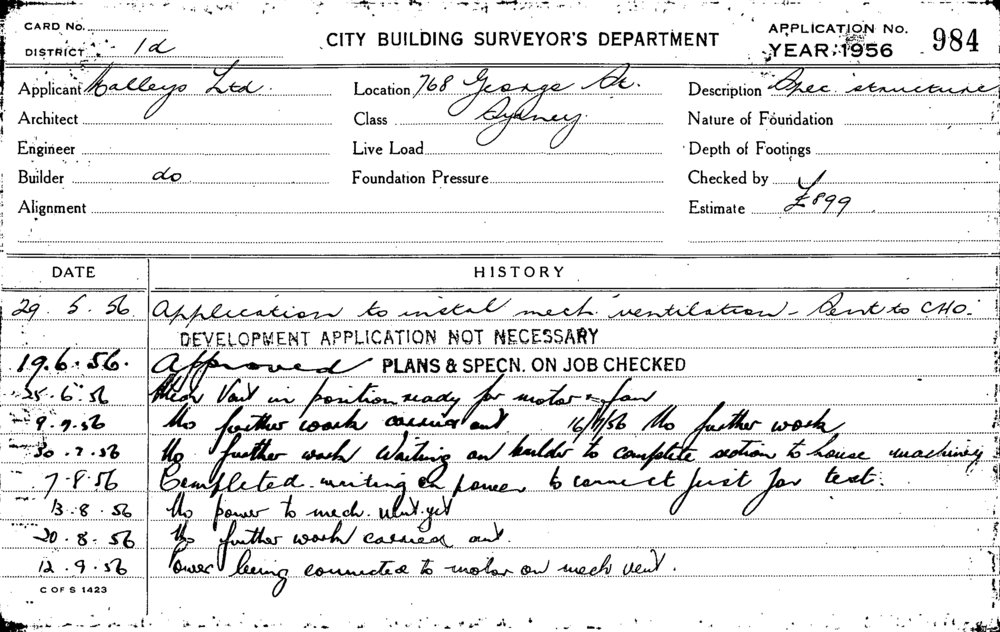 CARD No.
DISTRICT 1d
CITY BUILDING SURVEYOR'S DEPARTMENT
APPLICATION No. 984
YEAR 1956
Applicant Malleys Ltd. Location 768 George St. Description Spec. structure
Architect Class Sydney Nature of Foundation
Engineer Live Load Depth of Footings
Builder do Foundation Pressure Checked by
Alignment Estimate £899
DATE HISTORY
29. 5. 56 Application to instal mech. ventilation - Sent to CHO.
DEVELOPMENT APPLICATION NOT NECESSARY
19.6.56. Approved PLANS & SPECN. ON JOB CHECKED
25.6.56 Mech Vent in position ready for motor & fan
9.7.56 No further work carried out 16/7/56 No further work
30.7.56 No further work Waiting on builder to complete section to house machinery
7.8.56 Completed waiting on power to connect just for test.
13.8.56 No power to mech. vent yet
20.8.56 No further work carried out.
12.9.56 Power being connected to motor on mech vent.
C OF S 1423